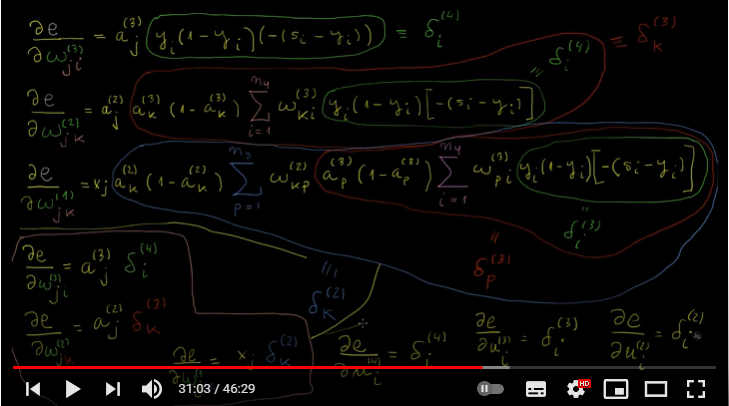 ∂e/∂ω_{ji}^{(3)} = a_j^{(3)} y_i(1-y_i)(-(s_i-y_i)) ≡ δ_i^{(4)}
∂e/∂ω_{jk}^{(2)} = a_j^{(2)} a_k^{(3)} (1-a_k^{(3)}) Σ_{i=1}^{n_4} ω_{ki}^{(3)} y_i(1-y_i)[-(s_i-y_i)] = δ_i^{(4)} ≡ δ_k^{(3)}
∂e/∂ω_{jk}^{(1)} = x_j a_k^{(2)} (1-a_k^{(2)}) Σ_{p=1}^{n_3} ω_{kp}^{(2)} a_p^{(3)} (1-a_p^{(3)}) Σ_{i=1}^{n_4} ω_{pi}^{(3)} y_i(1-y_i)[-(s_i-y_i)]
= δ_i^{(3)}
= δ_p^{(3)}
≡ δ_k^{(2)}
∂e/∂ω_{ji}^{(3)} = a_j^{(3)} δ_i^{(4)}
∂e/∂ω_{jk}^{(2)} = a_j^{(2)} δ_k^{(3)}
= x_j δ_k^{(2)}
∂e/∂u_i^{(4)} = δ_i^{(4)}
∂e/∂u_i^{(3)} = δ_i^{(3)}
∂e/∂u_i^{(2)} = δ_i^{(2)}
31:03 / 46:29
HD